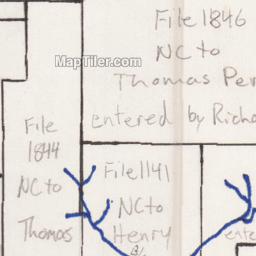 File 1846
NC to
Thomas Per
entered by Richa
MapTiler.com
File
1844
NC to
Thomas
File 1141
NC to
Henry
ente